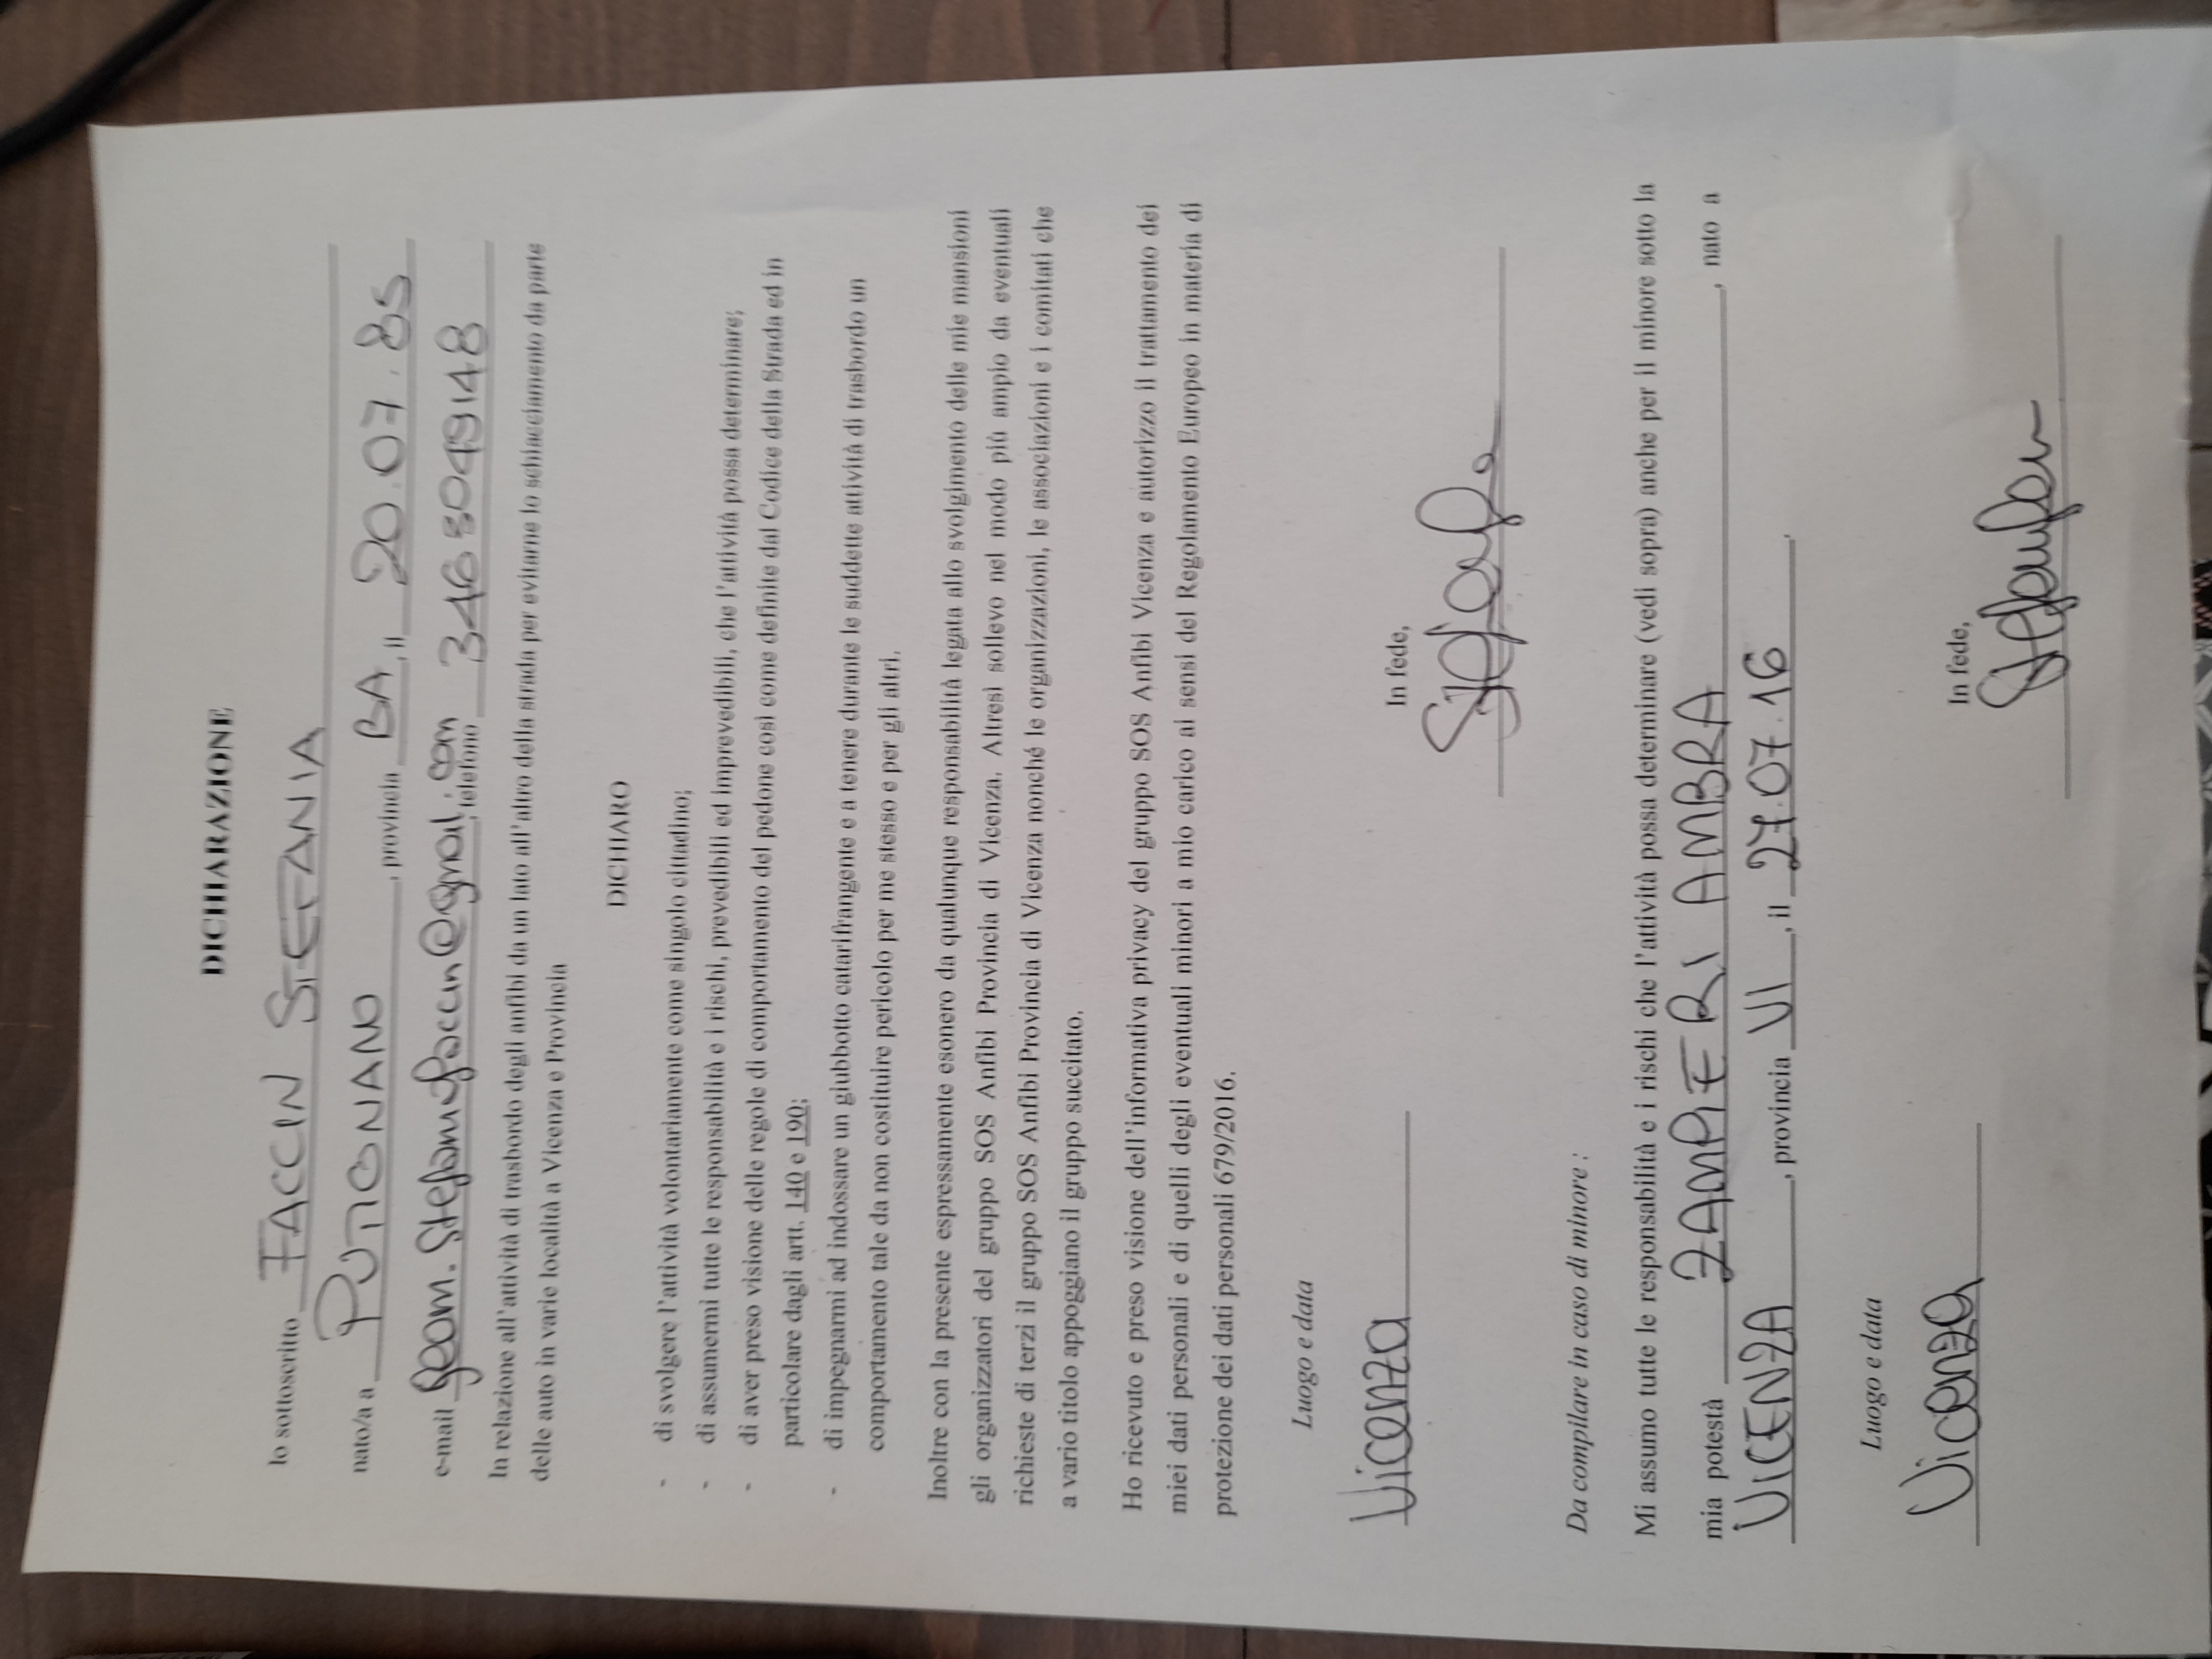 DICHIARAZIONE
Io sottoscritto FACCIN STEFANIA
nato/a a PUTIGNANO, provincia BA, il 20.07.85
e-mail geom.stefaniafaccin@gmail.com, telefono
In relazione all'attività di trasbordo degli anfibi da un lato all'altro della strada per evitarne lo schiacciamento da parte
delle auto in varie località a Vicenza e Provincia
DICHIARO
- di svolgere l'attività volontariamente come singolo cittadino;
- di assumermi tutte le responsabilità e i rischi, prevedibili ed imprevedibili, che l'attività possa determinare;
- di aver preso visione delle regole di comportamento del pedone così come definite dal Codice della Strada ed in
particolare dagli artt. 140 e 190;
- di impegnarmi ad indossare un giubbotto catarifrangente e a tenere durante le suddette attività di trasbordo un
comportamento tale da non costituire pericolo per me stesso e per gli altri.
Inoltre con la presente espressamente esonero da qualunque responsabilità legata allo svolgimento delle mie mansioni
gli organizzatori del gruppo SOS Anfibi Provincia di Vicenza. Altresì sollevo nel modo più ampio da eventuali
richieste di terzi il gruppo SOS Anfibi Provincia di Vicenza nonché le organizzazioni, le associazioni e i comitati che
a vario titolo appoggiano il gruppo succitato.
Ho ricevuto e preso visione dell'informativa privacy del gruppo SOS Anfibi Vicenza e autorizzo il trattamento dei
miei dati personali e di quelli degli eventuali minori a mio carico ai sensi del Regolamento Europeo in materia di
protezione dei dati personali 679/2016.
Luogo e data
Vicenza
In fede,
Da compilare in caso di minore :
Mi assumo tutte le responsabilità e i rischi che l'attività possa determinare (vedi sopra) anche per il minore sotto la
mia potestà ZAMPIERI AMBRA, nato a
VICENZA, provincia VI, il 27.07.16.
Luogo e data
Vicenza
In fede,